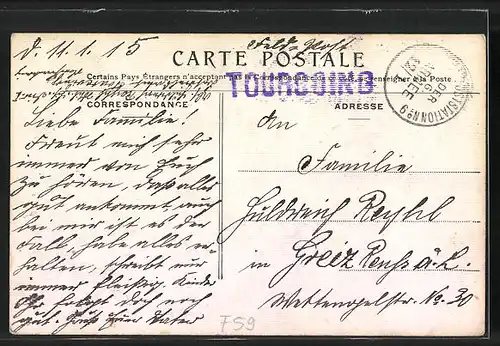 d. 11.1.15
Feld-Post
CARTE POSTALE
Certains Pays Étrangers n'acceptant pas
Correspondance
renseigner à la Poste
TOURCOING
CORRESPONDANCE
ADRESSE
Liebe Familie!
Freut mich sehr
immer von Euch
zu hören, daß alles
gut ankommt, auch
bei mir ist es der
Fall, habe alles er-
halten, schreibt nur
immer fleißig. Kinder
Ihr folgt doch noch
gut. Gruß Euer Vater
An
Familie
Huldreich
in Greiz Reuß ä. L.
No. 30
F59